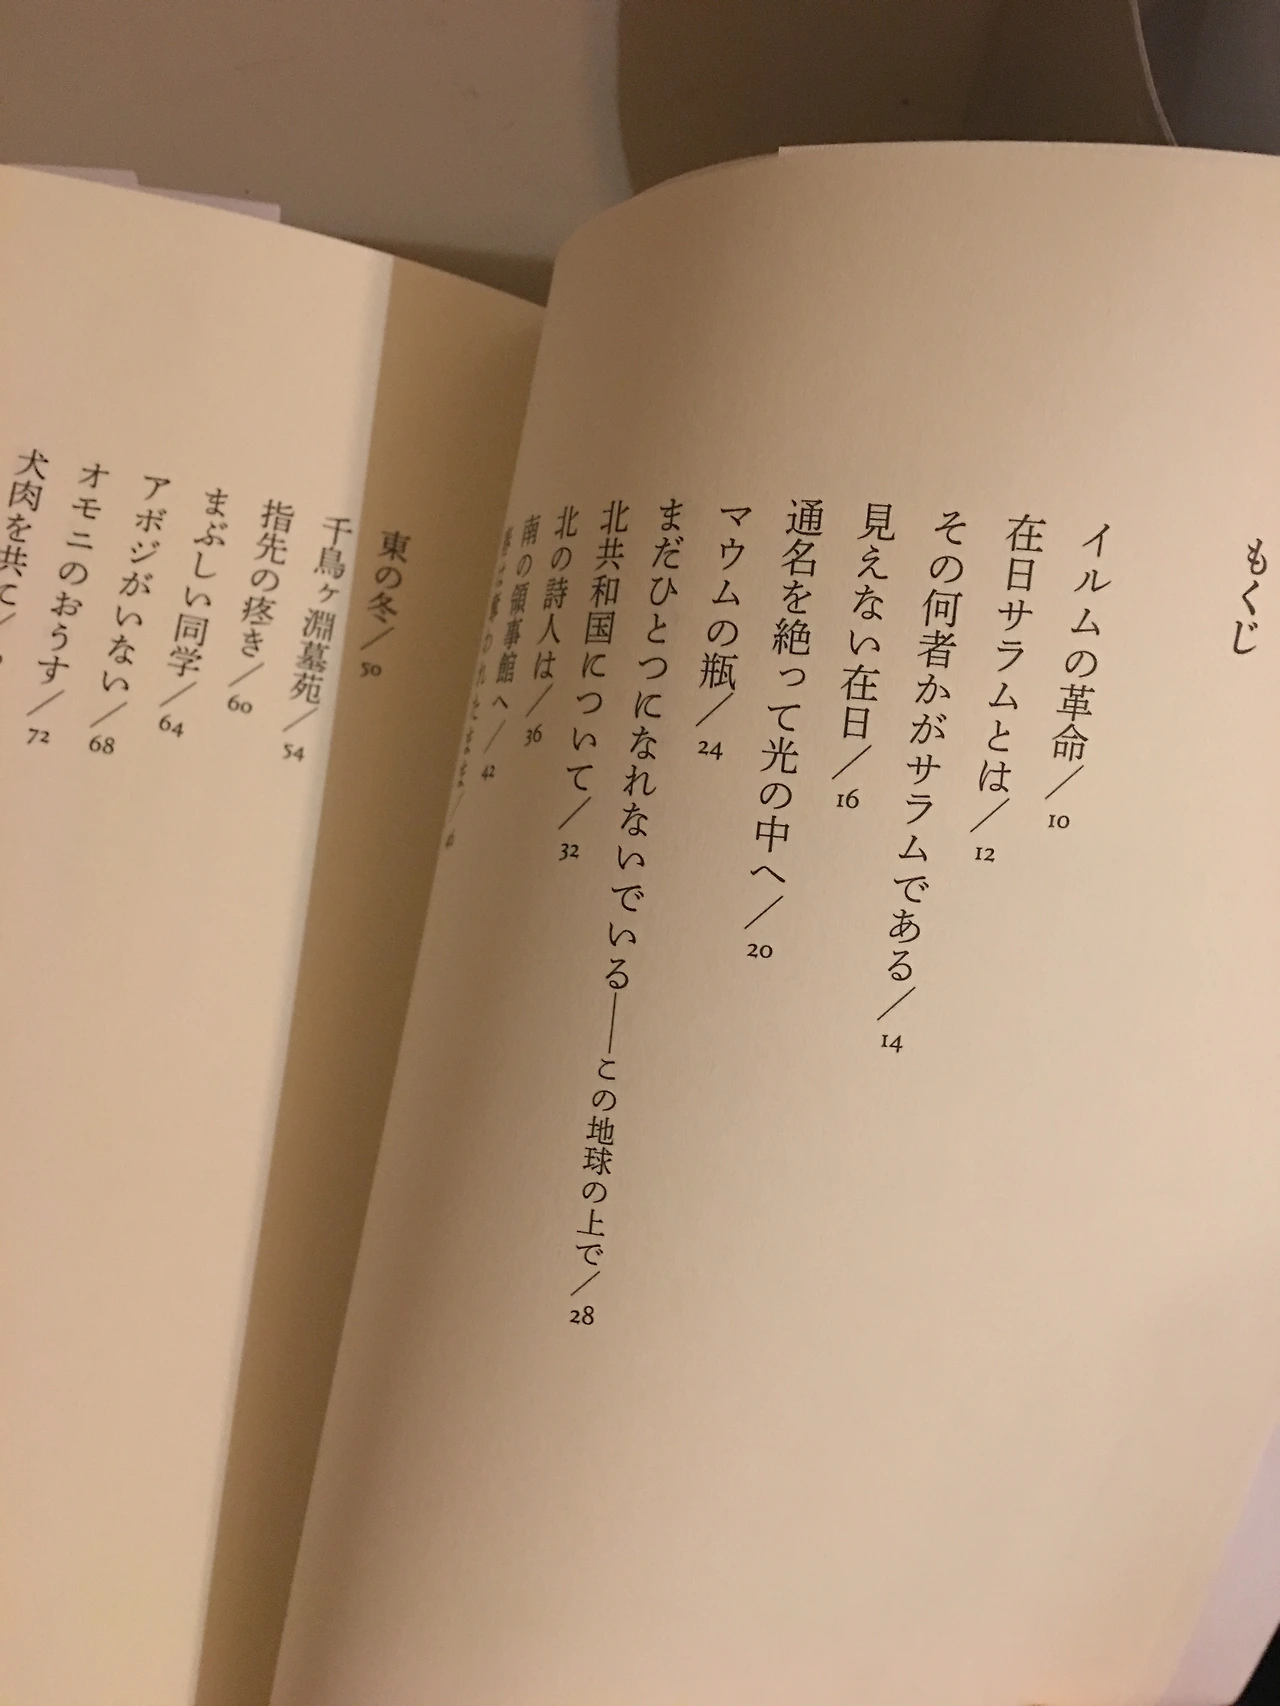 もくじ
イルムの革命／10
在日サラムとは／12
その何者かがサラムである／14
見えない在日／16
通名を絶って光の中へ／20
マウムの瓶／24
まだひとつになれないでいる——この地球の上で／28
北共和国について／32
北の詩人は／36
南の領事館へ／42
われたまま／
東の冬／50
千鳥ヶ淵墓苑／54
指先の疼き／60
まぶしい同学／64
アボジがいない／68
オモニのおうす／72
犬肉を共て／